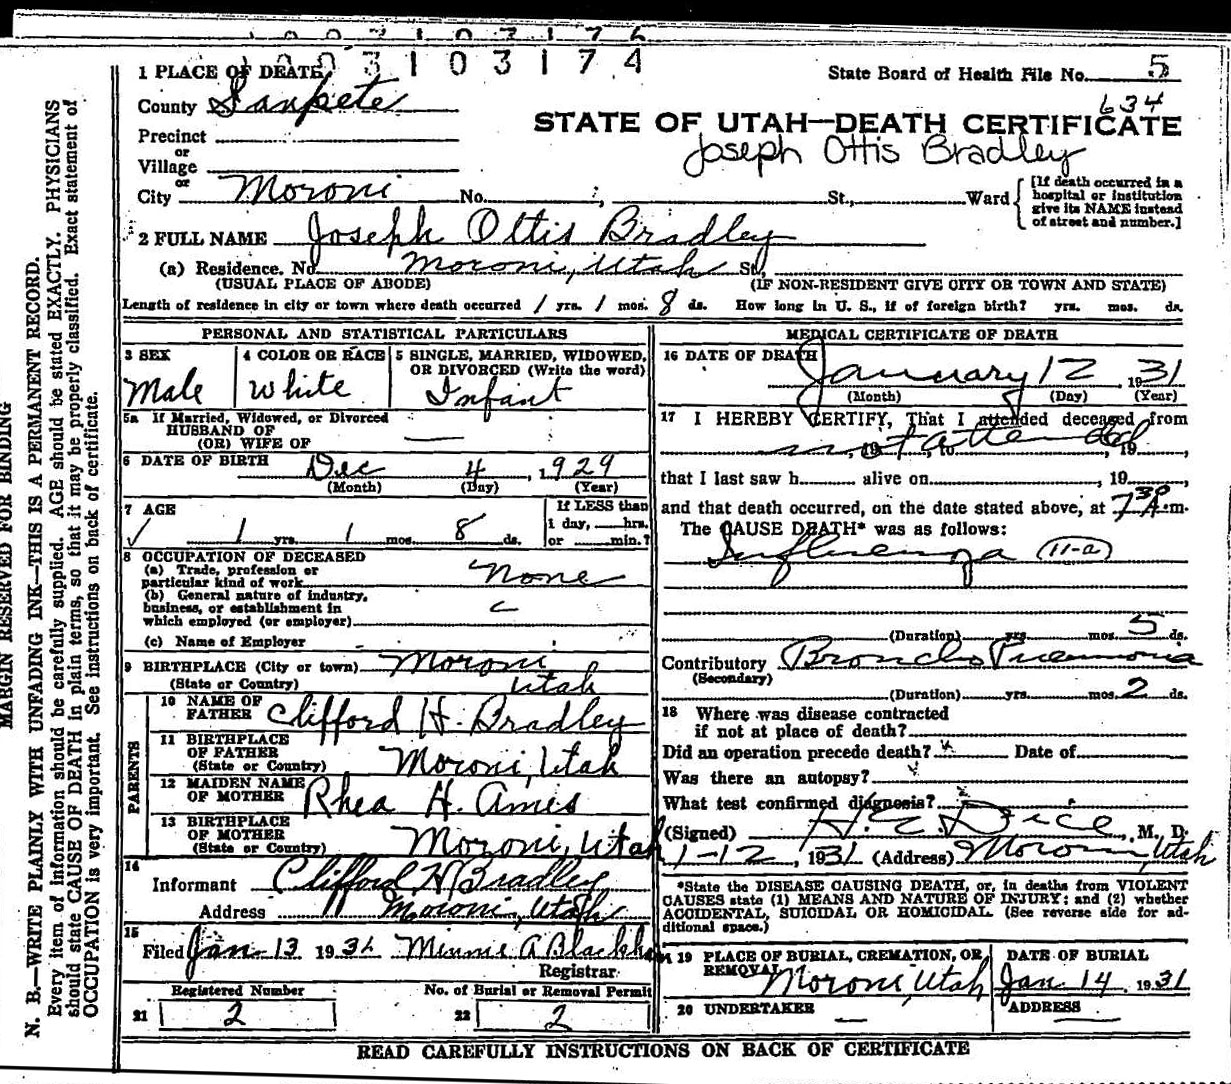 1003103174
1 PLACE OF DEATH
State Board of Health File No. 5
County Sanpete
634
STATE OF UTAH—DEATH CERTIFICATE
Joseph Ottis Bradley
Precinct
or
Village
or
City Moroni No. St., Ward
[If death occurred in a hospital or institution give its NAME instead of street and number.]
2 FULL NAME Joseph Ottis Bradley
(a) Residence. No. Moroni, Utah St.,
(USUAL PLACE OF ABODE) (IF NON-RESIDENT GIVE CITY OR TOWN AND STATE)
Length of residence in city or town where death occurred 1 yrs. 1 mos. 8 ds. How long in U. S., if of foreign birth? yrs. mos. ds.
PERSONAL AND STATISTICAL PARTICULARS
3 SEX
Male
4 COLOR OR RACE
White
5 SINGLE, MARRIED, WIDOWED,
OR DIVORCED (Write the word)
Infant
5a If Married, Widowed, or Divorced
HUSBAND OF
(OR) WIFE OF
6 DATE OF BIRTH Dec 4, 1929
(Month) (Day) (Year)
7 AGE
1 yrs. 1 mos. 8 ds.
If LESS than
1 day, hrs.
or min.?
8 OCCUPATION OF DECEASED
(a) Trade, profession or
particular kind of work None
(b) General nature of industry,
business, or establishment in
which employed (or employer)
(c) Name of Employer
9 BIRTHPLACE (City or town) Moroni
(State or Country) Utah
PARENTS
10 NAME OF
FATHER Clifford H. Bradley
11 BIRTHPLACE
OF FATHER
(State or Country) Moroni, Utah
12 MAIDEN NAME
OF MOTHER Rhea H. Ames
13 BIRTHPLACE
OF MOTHER
(State or Country) Moroni, Utah
14
Informant Clifford H Bradley
Address Moroni, Utah
15
Filed Jan 13 193 Minnie A
Registrar
Registered Number
21 2
No. of Burial or Removal Permit
22 2
MEDICAL CERTIFICATE OF DEATH
16 DATE OF DEATH
January 12, 1931
(Month) (Day) (Year)
17 I HEREBY CERTIFY, That I attended deceased from
not attended, 19, to, 19,
that I last saw h alive on, 19.
and that death occurred, on the date stated above, at 7 30 A.m.
The CAUSE DEATH* was as follows:
Influenza 11-a
(Duration) yrs mos. 5 ds.
Contributory Broncho Pneumonia
(Secondary)
(Duration) yrs. mos. 2 ds.
18 Where was disease contracted
if not at place of death?
Did an operation precede death? Date of
Was there an autopsy?
What test confirmed diagnosis?
(Signed) H. E. Dice, M. D.
1-12, 1931 (Address) Moroni, Utah
*State the DISEASE CAUSING DEATH, or, in deaths from VIOLENT
CAUSES state (1) MEANS AND NATURE OF INJURY; and (2) whether
ACCIDENTAL, SUICIDAL OR HOMICIDAL. (See reverse side for ad-
ditional space.)
19 PLACE OF BURIAL, CREMATION, OR
REMOVAL Moroni, Utah
DATE OF BURIAL
Jan 14, 1931
20 UNDERTAKER
ADDRESS
READ CAREFULLY INSTRUCTIONS ON BACK OF CERTIFICATE
MARGIN RESERVED FOR BINDING
N. B.—WRITE PLAINLY WITH UNFADING INK—THIS IS A PERMANENT RECORD.
Every item of information should be carefully supplied. AGE should be stated EXACTLY. PHYSICIANS
should state CAUSE OF DEATH in plain terms, so that it may be properly classified. Exact statement of
OCCUPATION is very important. See instructions on back of certificate.